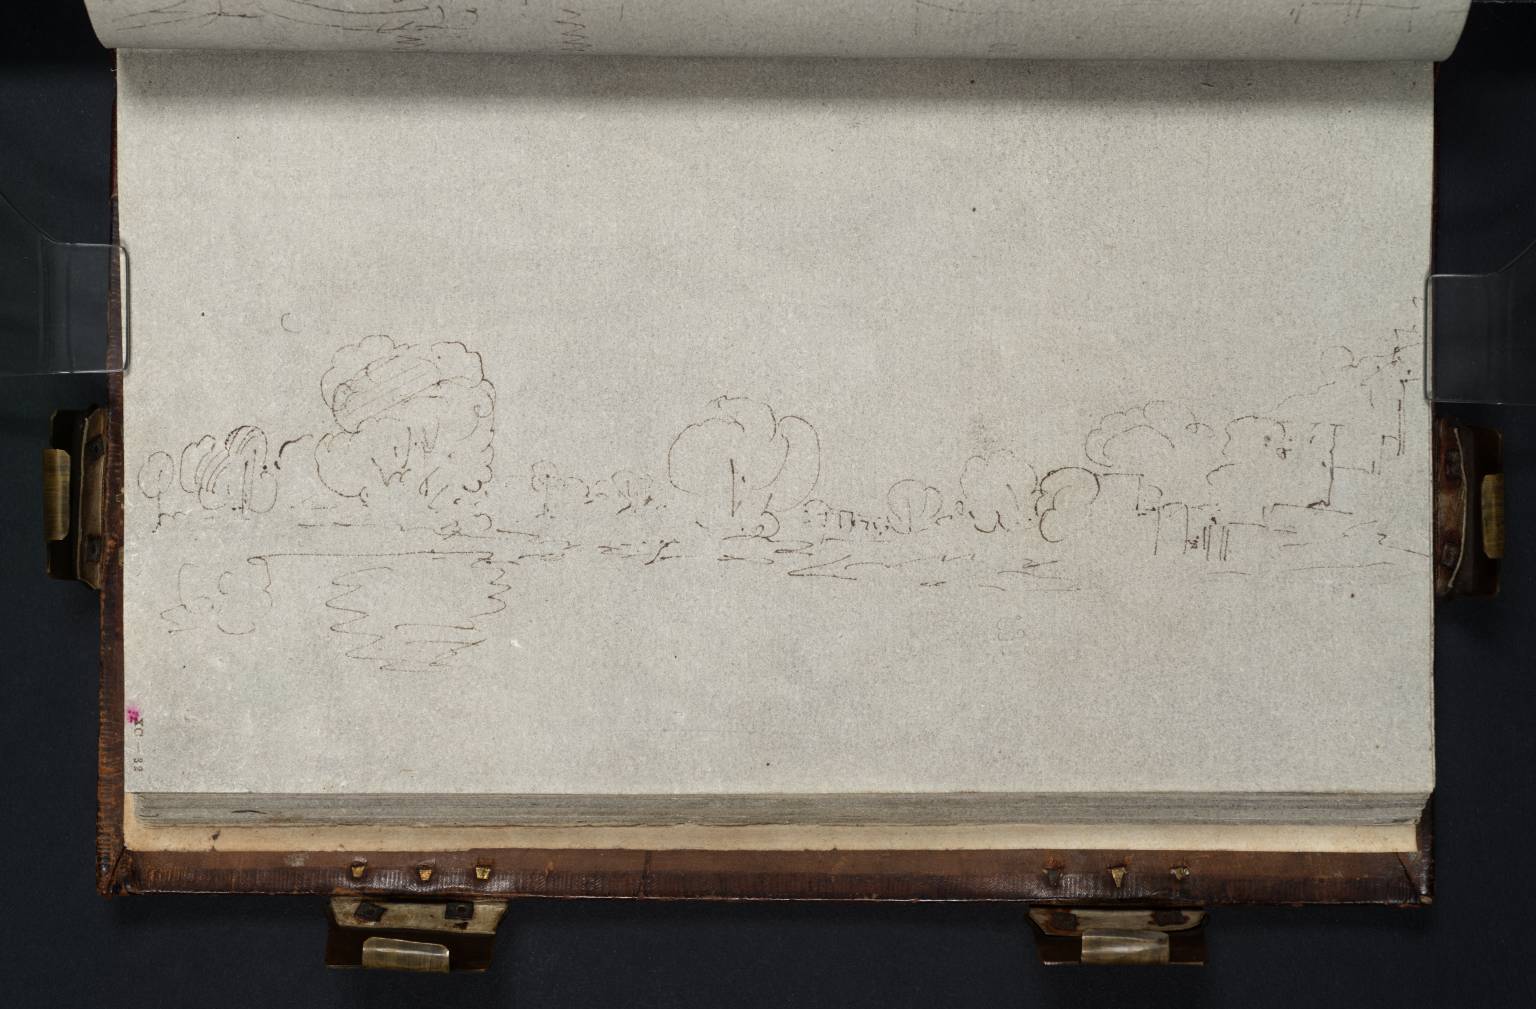 XC - 32